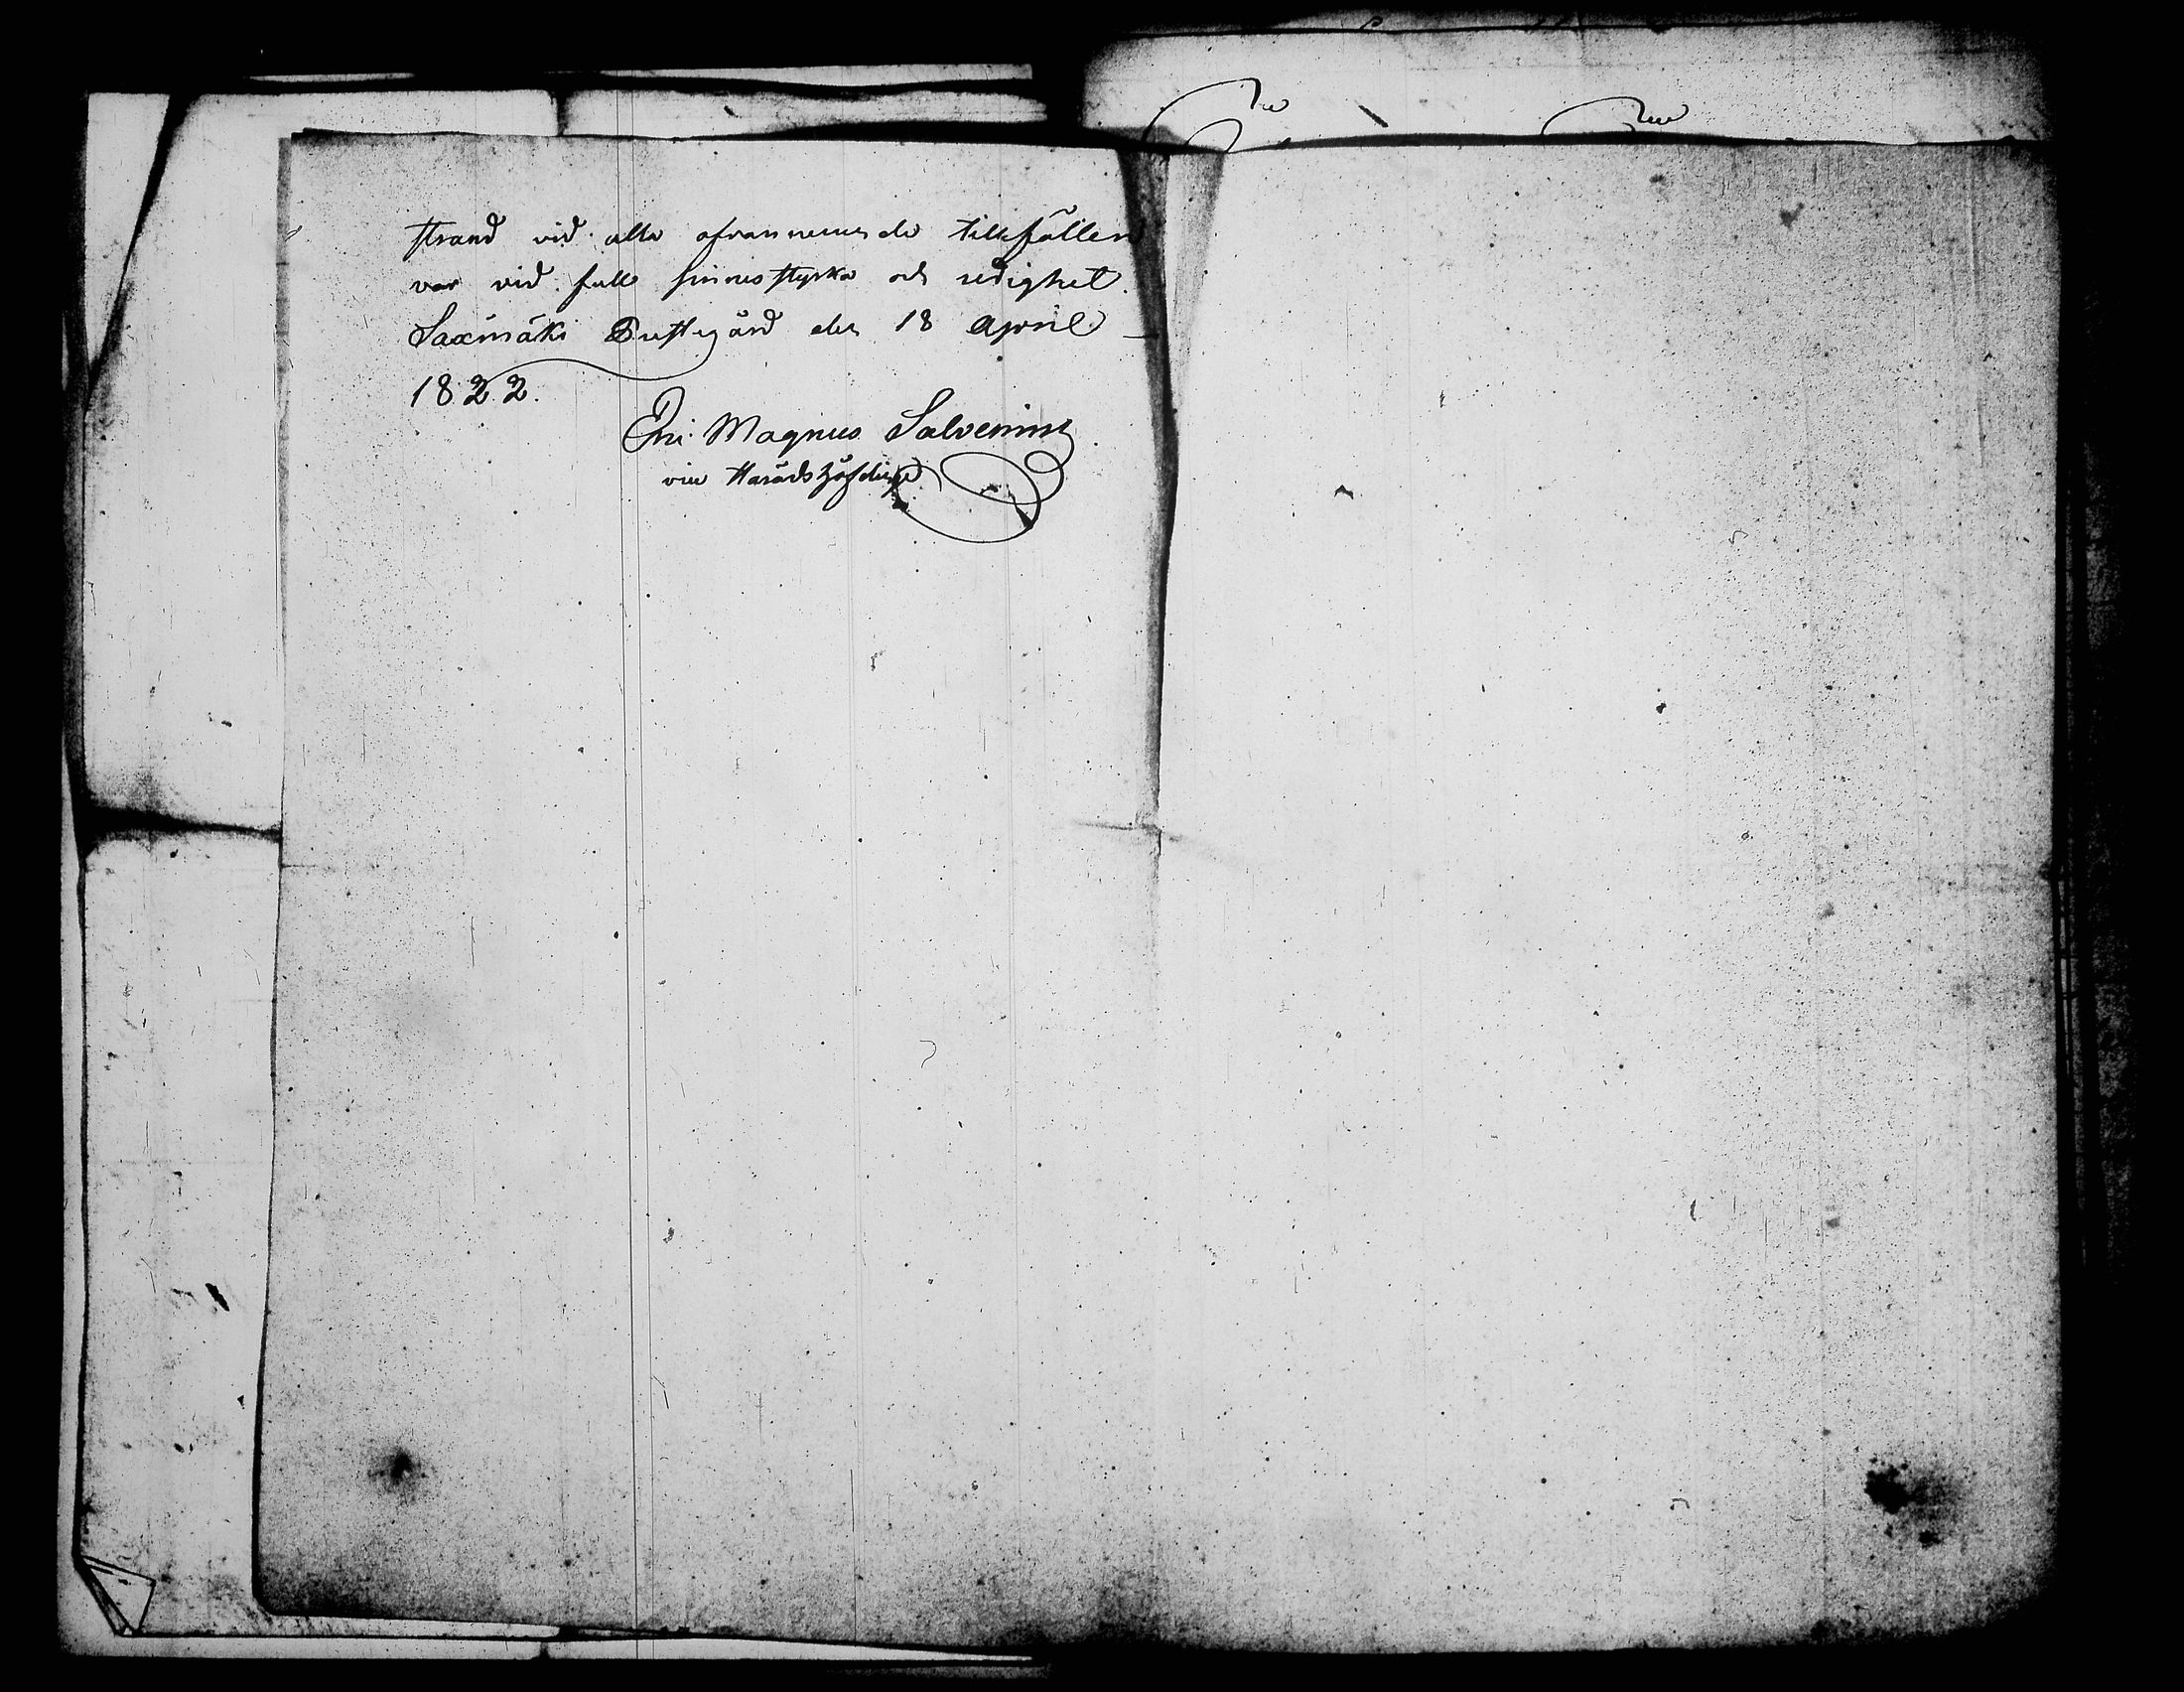 strand vid alla ofvannemnde tillfällen
var vid full sinnesstyrka och redighet.
Saxmäki Rustigård den 18 April
1822.
Magnus Salvenius
vice Häradshöfdinge